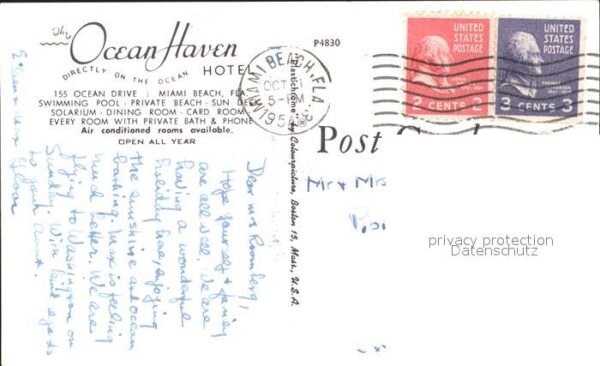 The
Ocean Haven
HOTEL
DIRECTLY ON THE OCEAN
155 OCEAN DRIVE : MIAMI BEACH, FLA.
SWIMMING POOL · PRIVATE BEACH · SUN DECK
SOLARIUM · DINING ROOM · CARD ROOM
EVERY ROOM WITH PRIVATE BATH & PHONE
Air conditioned rooms available.
OPEN ALL YEAR
P4830
MIAMI BEACH, FLA.
OCT
5-PM
1954
UNITED STATES POSTAGE
2 CENTS 2
UNITED STATES POSTAGE
THOMAS JEFFERSON
3 CENTS 3
Plastichrome by Colourpicture, Boston 15, Mass., U.S.A.
Post
Mr & Mrs
privacy protection
Datenschutz
Dear Mrs
Hope yourself & family
are all well. We are
having a wonderful
holiday here, enjoying
the sunshine and ocean
bathing. Max is feeling
much better. We are
flying to Washington on
Sunday. With kind regards
to your aunt.